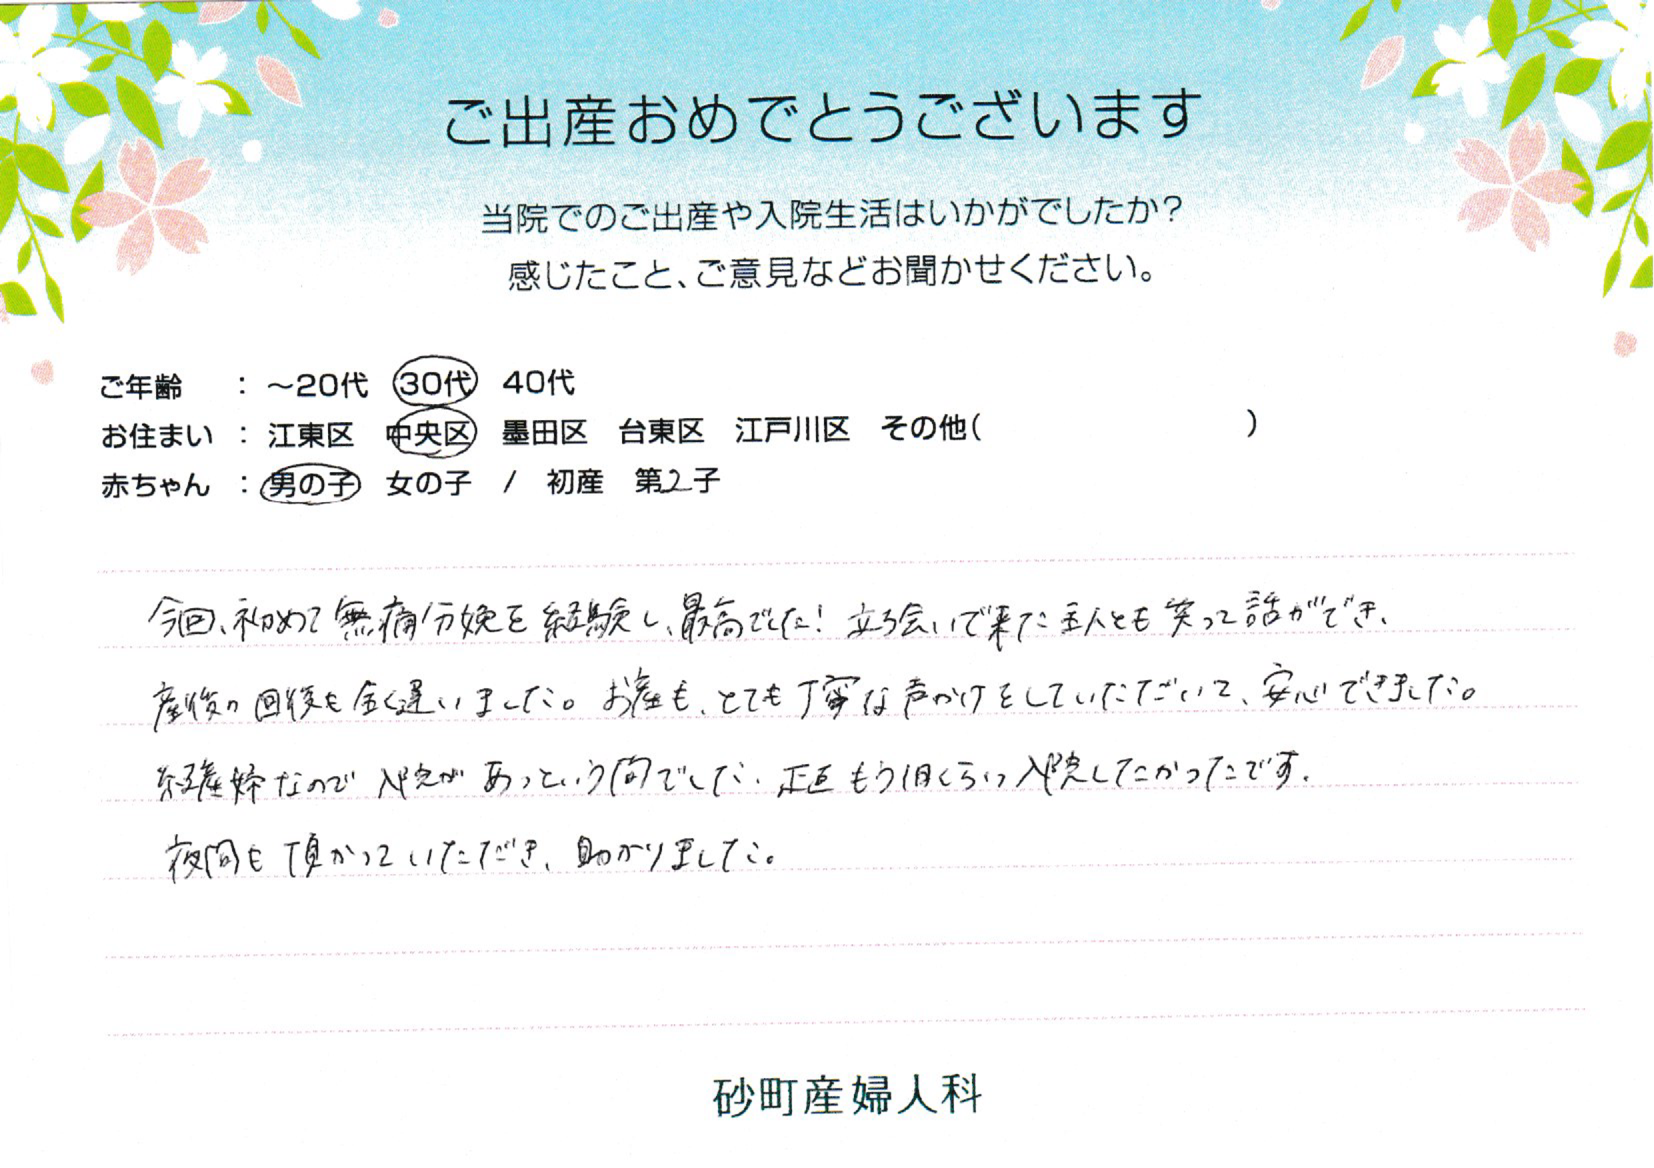 ご出産おめでとうございます
当院でのご出産や入院生活はいかがでしたか?
感じたこと、ご意見などお聞かせください。
ご年齢 : ~20代 30代 40代
お住まい : 江東区 中央区 墨田区 台東区 江戸川区 その他( )
赤ちゃん : 男の子 女の子 / 初産 第2子
今回、初めて無痛分娩を経験し、最高でした! 立ち会いで来た主人とも笑って話ができ、
産後の回復も全く違いました。お産も、とても丁寧な声かけをしていただいて、安心できました。
経産婦なので入院があっという間でした。正直もう1泊くらい入院したかったです。
夜間も預かっていただき、助かりました。
砂町産婦人科